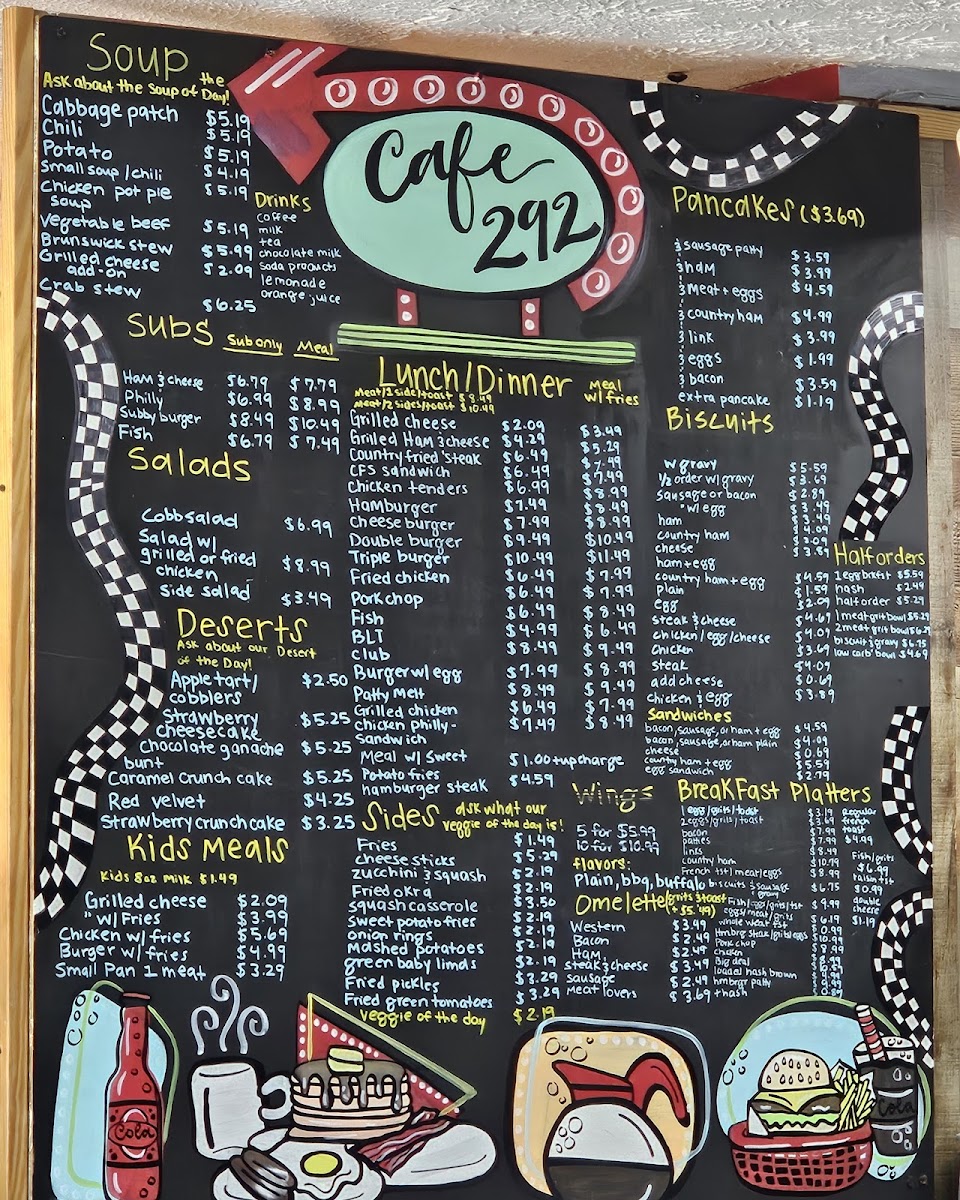 Soup
Ask about the Soup of the Day!
Cabbage patch $5.19
Chili $5.19
Potato $5.19
Small soup/chili $4.19
Chicken pot pie soup $5.19
Vegetable beef $5.19
Brunswick stew $5.99
Grilled cheese add-on $2.09
Crab stew $6.25
Drinks
coffee
milk
tea
chocolate milk
soda products
lemonade
orange juice
Cafe
292
Subs Sub only Meal
Ham & cheese $6.79 $7.79
Philly $6.99 $8.99
Subby burger $8.49 $10.49
Fish $6.79 $7.49
Salads
Cobb salad $6.99
Salad w/ grilled or fried chicken $8.99
side salad $3.49
Deserts
Ask about our Desert
of the Day!
Apple tart/ cobblers $2.50
Strawberry cheesecake $5.25
chocolate ganache bunt $5.25
Caramel crunch cake $5.25
Red velvet $4.25
Strawberry crunch cake $3.25
Kids Meals
Kids 8oz milk $1.49
Grilled cheese $2.09
" w/ Fries $3.99
Chicken w/ fries $5.69
Burger w/ fries $4.99
Small Pan 1 meat $3.29
Lunch/Dinner
Meat/1 side/toast $8.49
Meat/2 sides/toast $10.49
Meal
w/ fries
Grilled cheese $2.09 $3.49
Grilled Ham & cheese $4.29 $5.29
Country fried steak $6.49 $7.49
CFS sandwich $6.49 $7.49
Chicken tenders $6.99 $8.99
Hamburger $7.49 $8.49
Cheese burger $7.99 $8.99
Double burger $9.49 $10.49
Triple burger $10.49 $11.49
Fried chicken $6.49 $7.99
Pork chop $6.49 $7.99
Fish $6.49 $8.49
BLT $4.99 $6.49
Club $8.49 $9.49
Burger w/ egg $7.99 $8.99
Patty Melt $8.49 $9.49
Grilled chicken $6.49 $7.99
chicken philly- sandwich $7.49 $8.49
Meal w/ sweet Potato fries $1.00 + upcharge
hamburger steak $4.59
Sides
ask what our
veggie of the day is!
Fries $1.49
Cheese sticks $5.29
zucchini & squash $2.19
Fried okra $2.19
squash casserole $3.50
Sweet potato fries $2.19
onion rings $2.19
mashed potatoes $2.19
green baby limas $2.19
Fried pickles $3.29
Fried green tomatoes $3.29
veggie of the day $2.19
Pancakes ($3.69)
& sausage patty $3.59
& ham $3.99
& Meat + eggs $4.59
& country ham $4.99
& link $3.99
& eggs $1.99
& bacon $3.59
extra pancake $1.19
Biscuits
w gravy $5.59
1/2 order w/ gravy $3.69
Sausage or bacon $2.89
" w/ egg $3.49
ham $3.49
country ham $4.09
cheese $2.09
ham + egg $3.89
country ham + egg $4.59
Plain $1.59
egg $2.09
steak & cheese $4.69
chicken/egg/cheese $4.09
chicken $3.69
steak $4.09
add cheese $0.69
chicken & egg $3.89
Half orders
1 egg brkfst $5.59
hash $2.49
half order $5.29
1 meat grit bowl $5.29
2 meat grit bowl $6.29
biscuit & gravy $6.75
low carb bowl $4.69
Sandwiches
bacon, sausage, or ham + egg $4.59
bacon, sausage, or ham plain $4.09
cheese $0.69
country ham + egg $5.59
egg sandwich $2.79
Wings
5 for $5.99
10 for $10.99
flavors:
Plain, bbq, buffalo
Omelette (grits & toast + $5.49)
Western $3.49
Bacon $2.49
Ham $2.49
steak & cheese $3.49
sausage $2.49
meat lovers $3.69
BreakFast Platters
1 egg/grits/toast $3.19
2 eggs/grits/toast $3.69
bacon $7.99
patties $7.99
links $8.49
country ham $10.99
French tst/meat/eggs $8.99
biscuits & sausage gravy $6.75
Fish/egg/grits/tst $9.99
eggs/meat/grits $6.19
whole wheat tst $0.99
Hmbrg steak/grits/eggs $10.99
Pork chop $8.99
chicken $8.99
Big deal
loaded hash brown
hmbrgr patty
+ hash
Regular
french
toast
$4.99
Fish/grits
$6.99
raisin tst
$0.99
double
cheese
$1.19
Cola
Cola